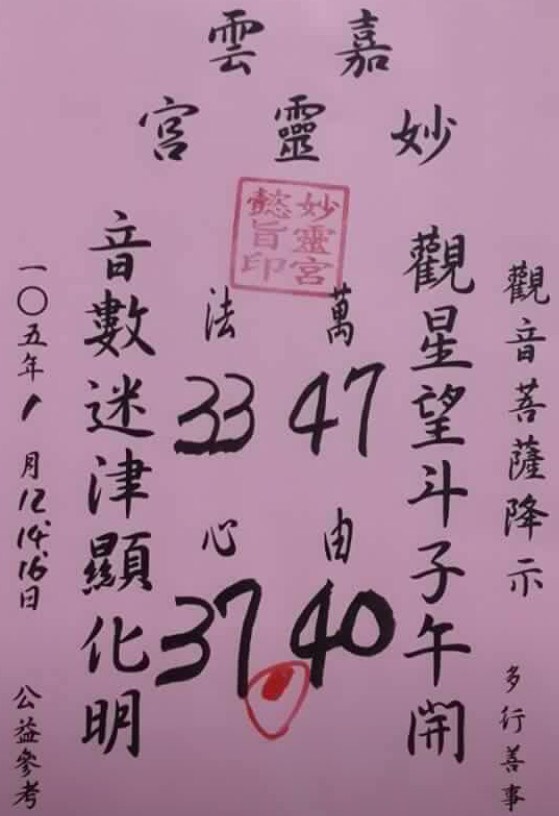 嘉雲
妙靈宮
妙靈宮
懿旨印
觀音菩薩降示 多行善事
觀星望斗子午開
萬法由心
47 33
40 37
音數迷津顯化明
一〇五年1月12 14 16日 公益參考